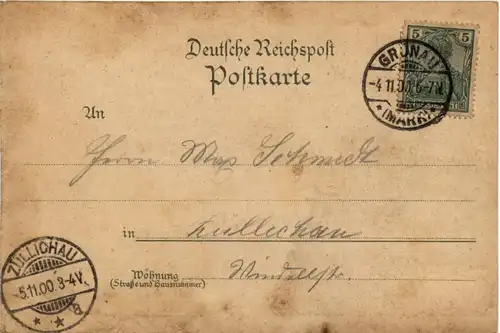 Deutsche Reichspost
Postkarte
5 5
GRÜNAU
-4.11.00.6-7N.
* (MARK) *
An
Herrn Max Schmidt
in Züllichau
Wohnung
(Straße und Hausnummer)
ZÜLLICHAU
-5.11.00.3-4V.
* * B.